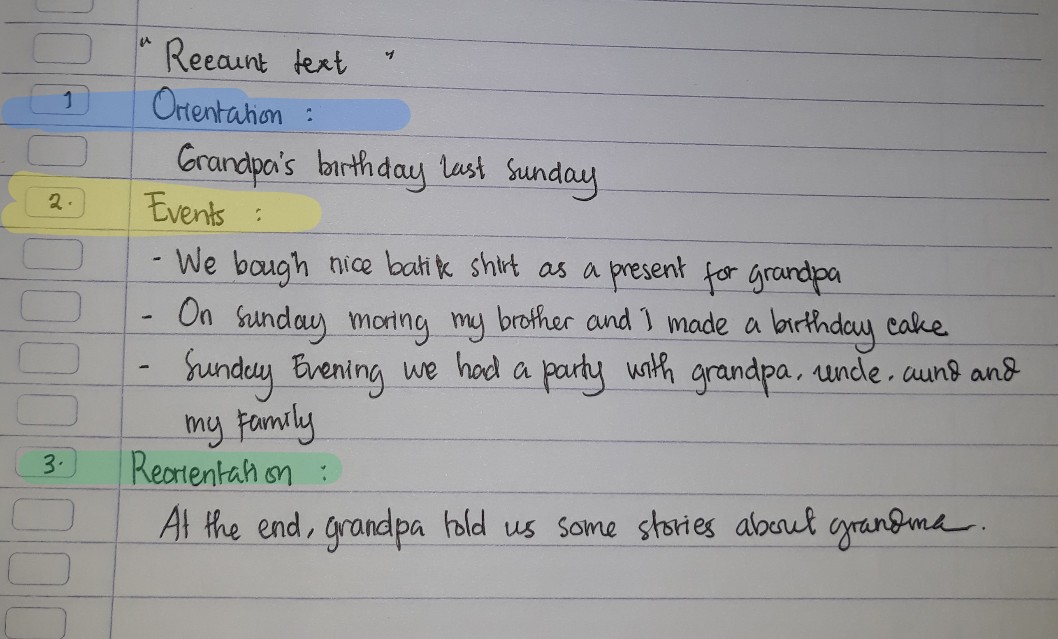 " Recount text "
1 Orientation :
Grandpa's birthday last Sunday
2. Events :
- We bough nice batik shirt as a present for grandpa
- On Sunday moring my brother and I made a birthday cake
- Sunday Evening we had a party with grandpa, uncle, aund and
my family
3. Reorientation :
At the end, grandpa told us some stories about grandma.